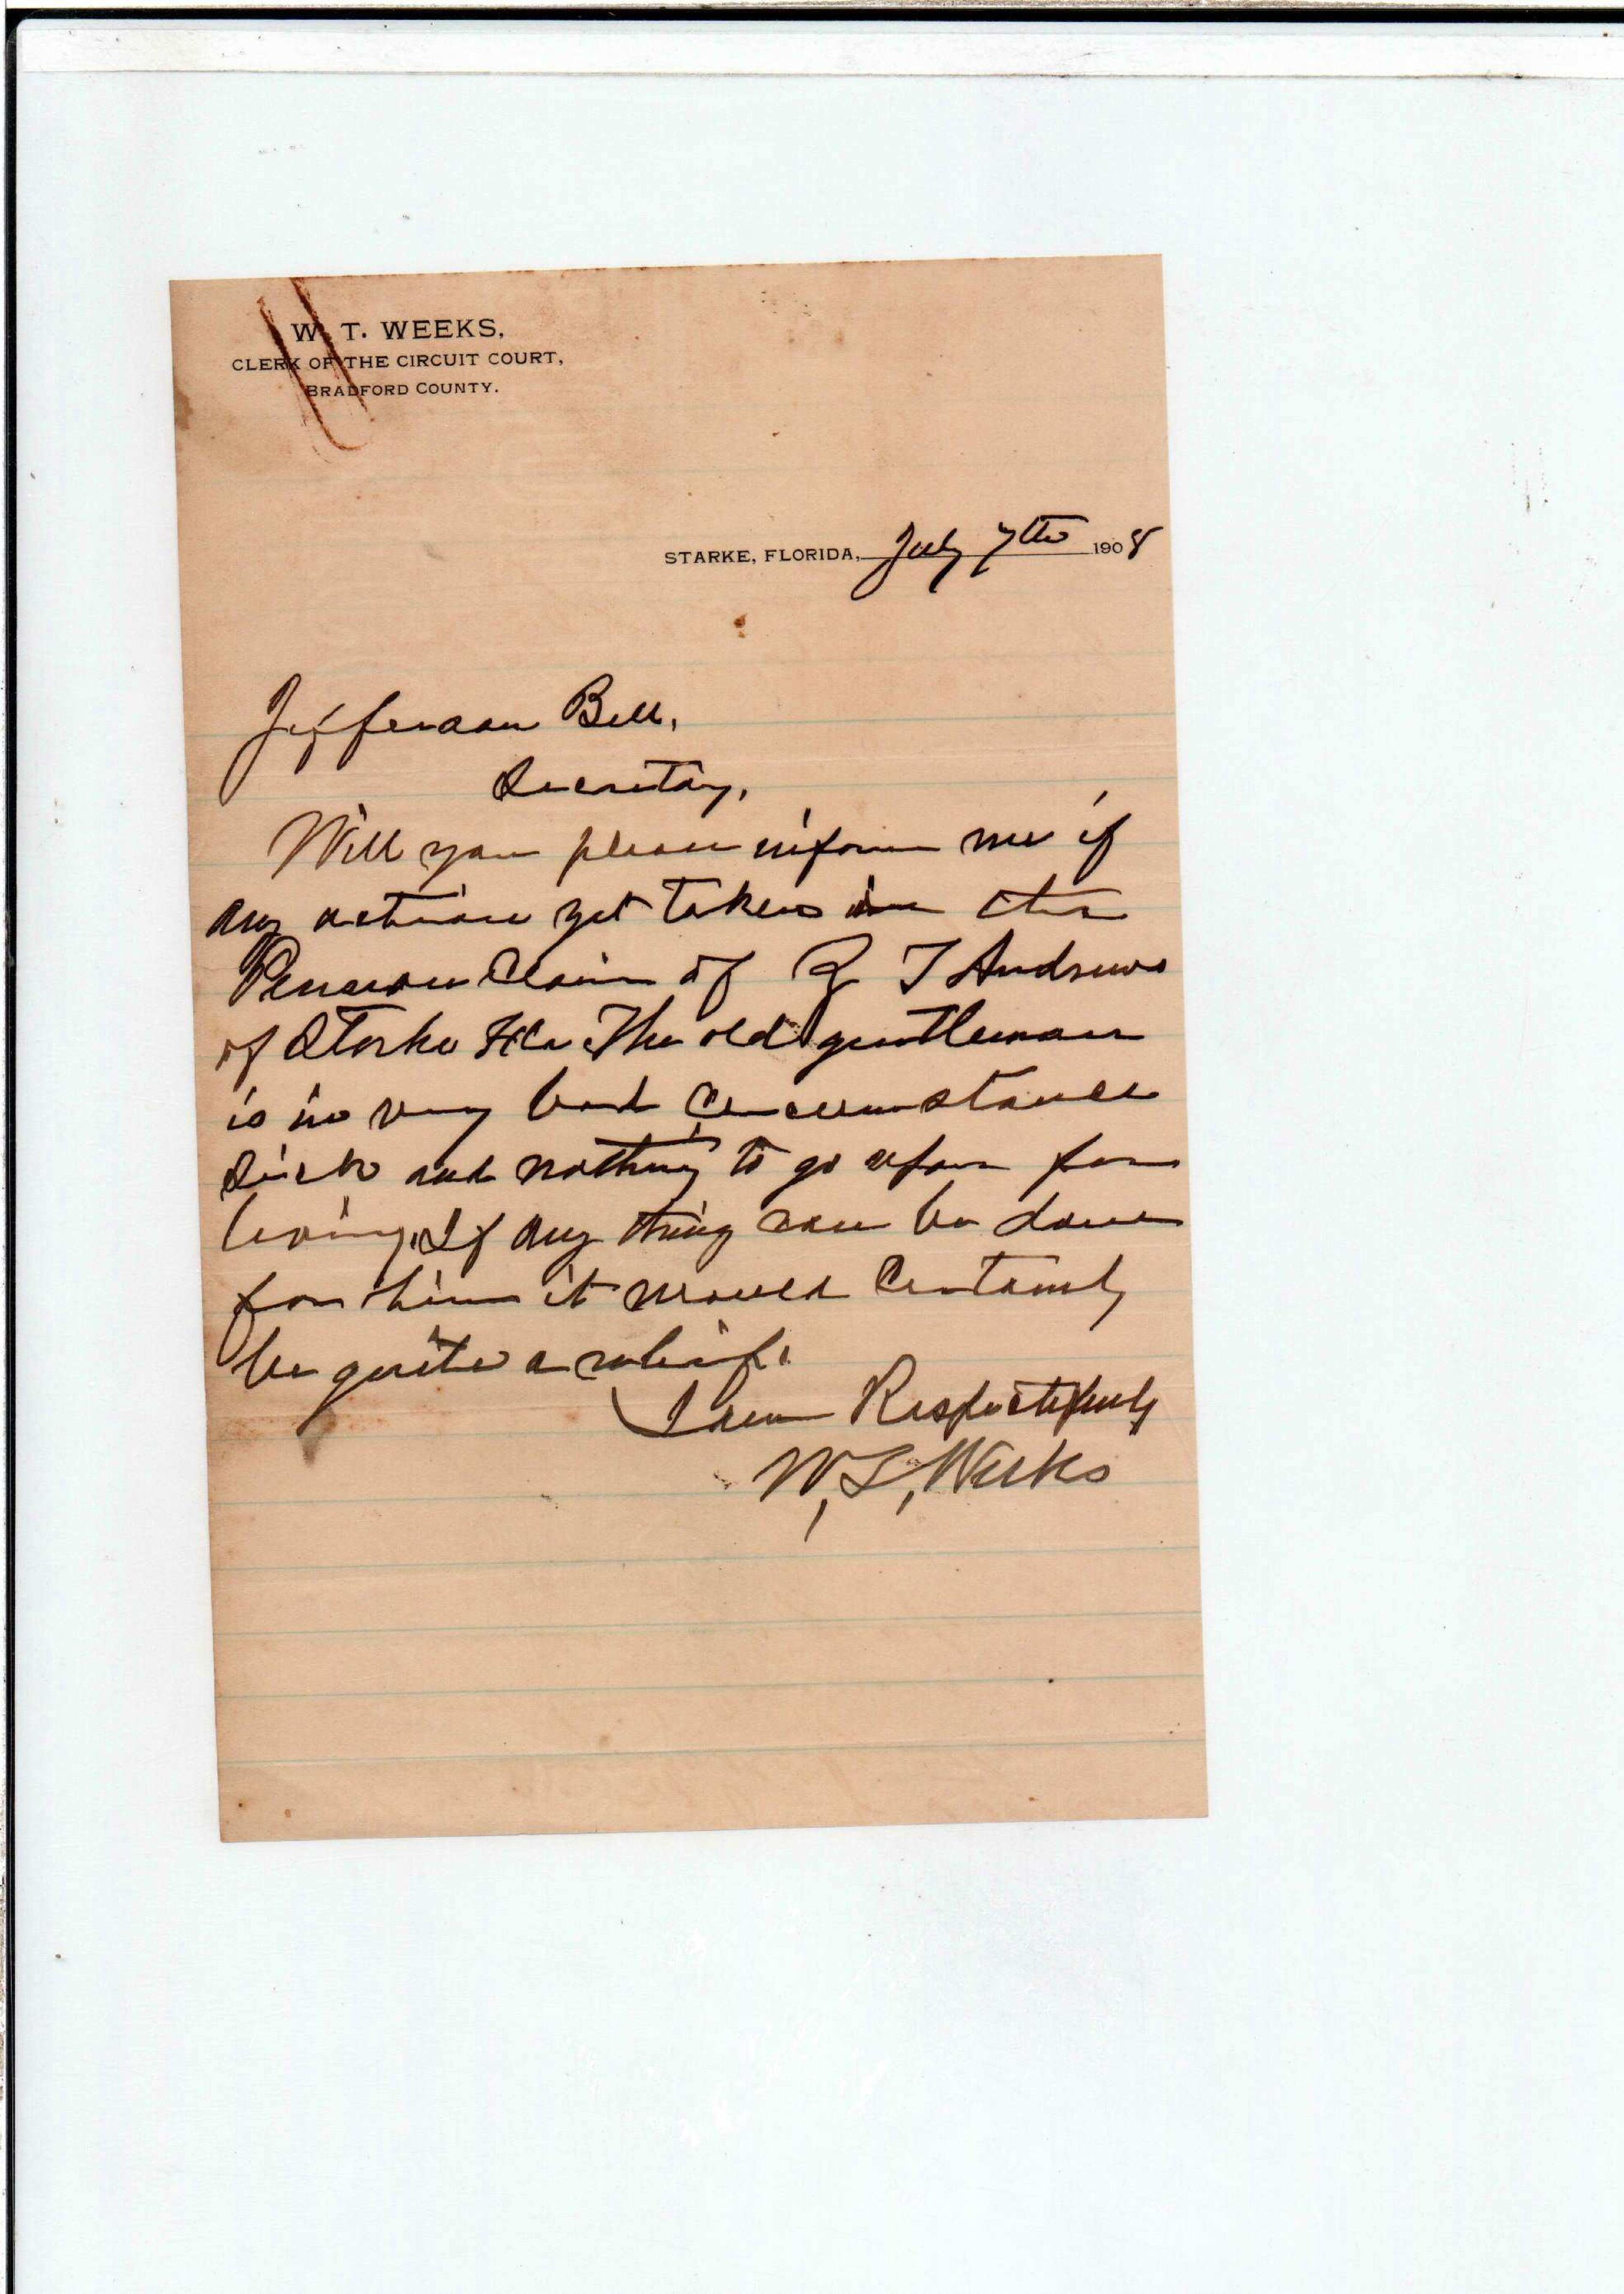 W. T. WEEKS,
CLERK OF THE CIRCUIT COURT,
BRADFORD COUNTY.
STARKE, FLORIDA, July 7th 1908
Jefferson Bell,
Secretary,
Will you please inform me if
any action yet taken in the
Pension Claim of Z T Andrews
of Starke Fla The old gentleman
is in very bad Circumstance
Sick and nothing to go upon for
living, If any thing can be done
for him it would Certainly
be quite a relief.
I am Respectfully
W, T, Weeks